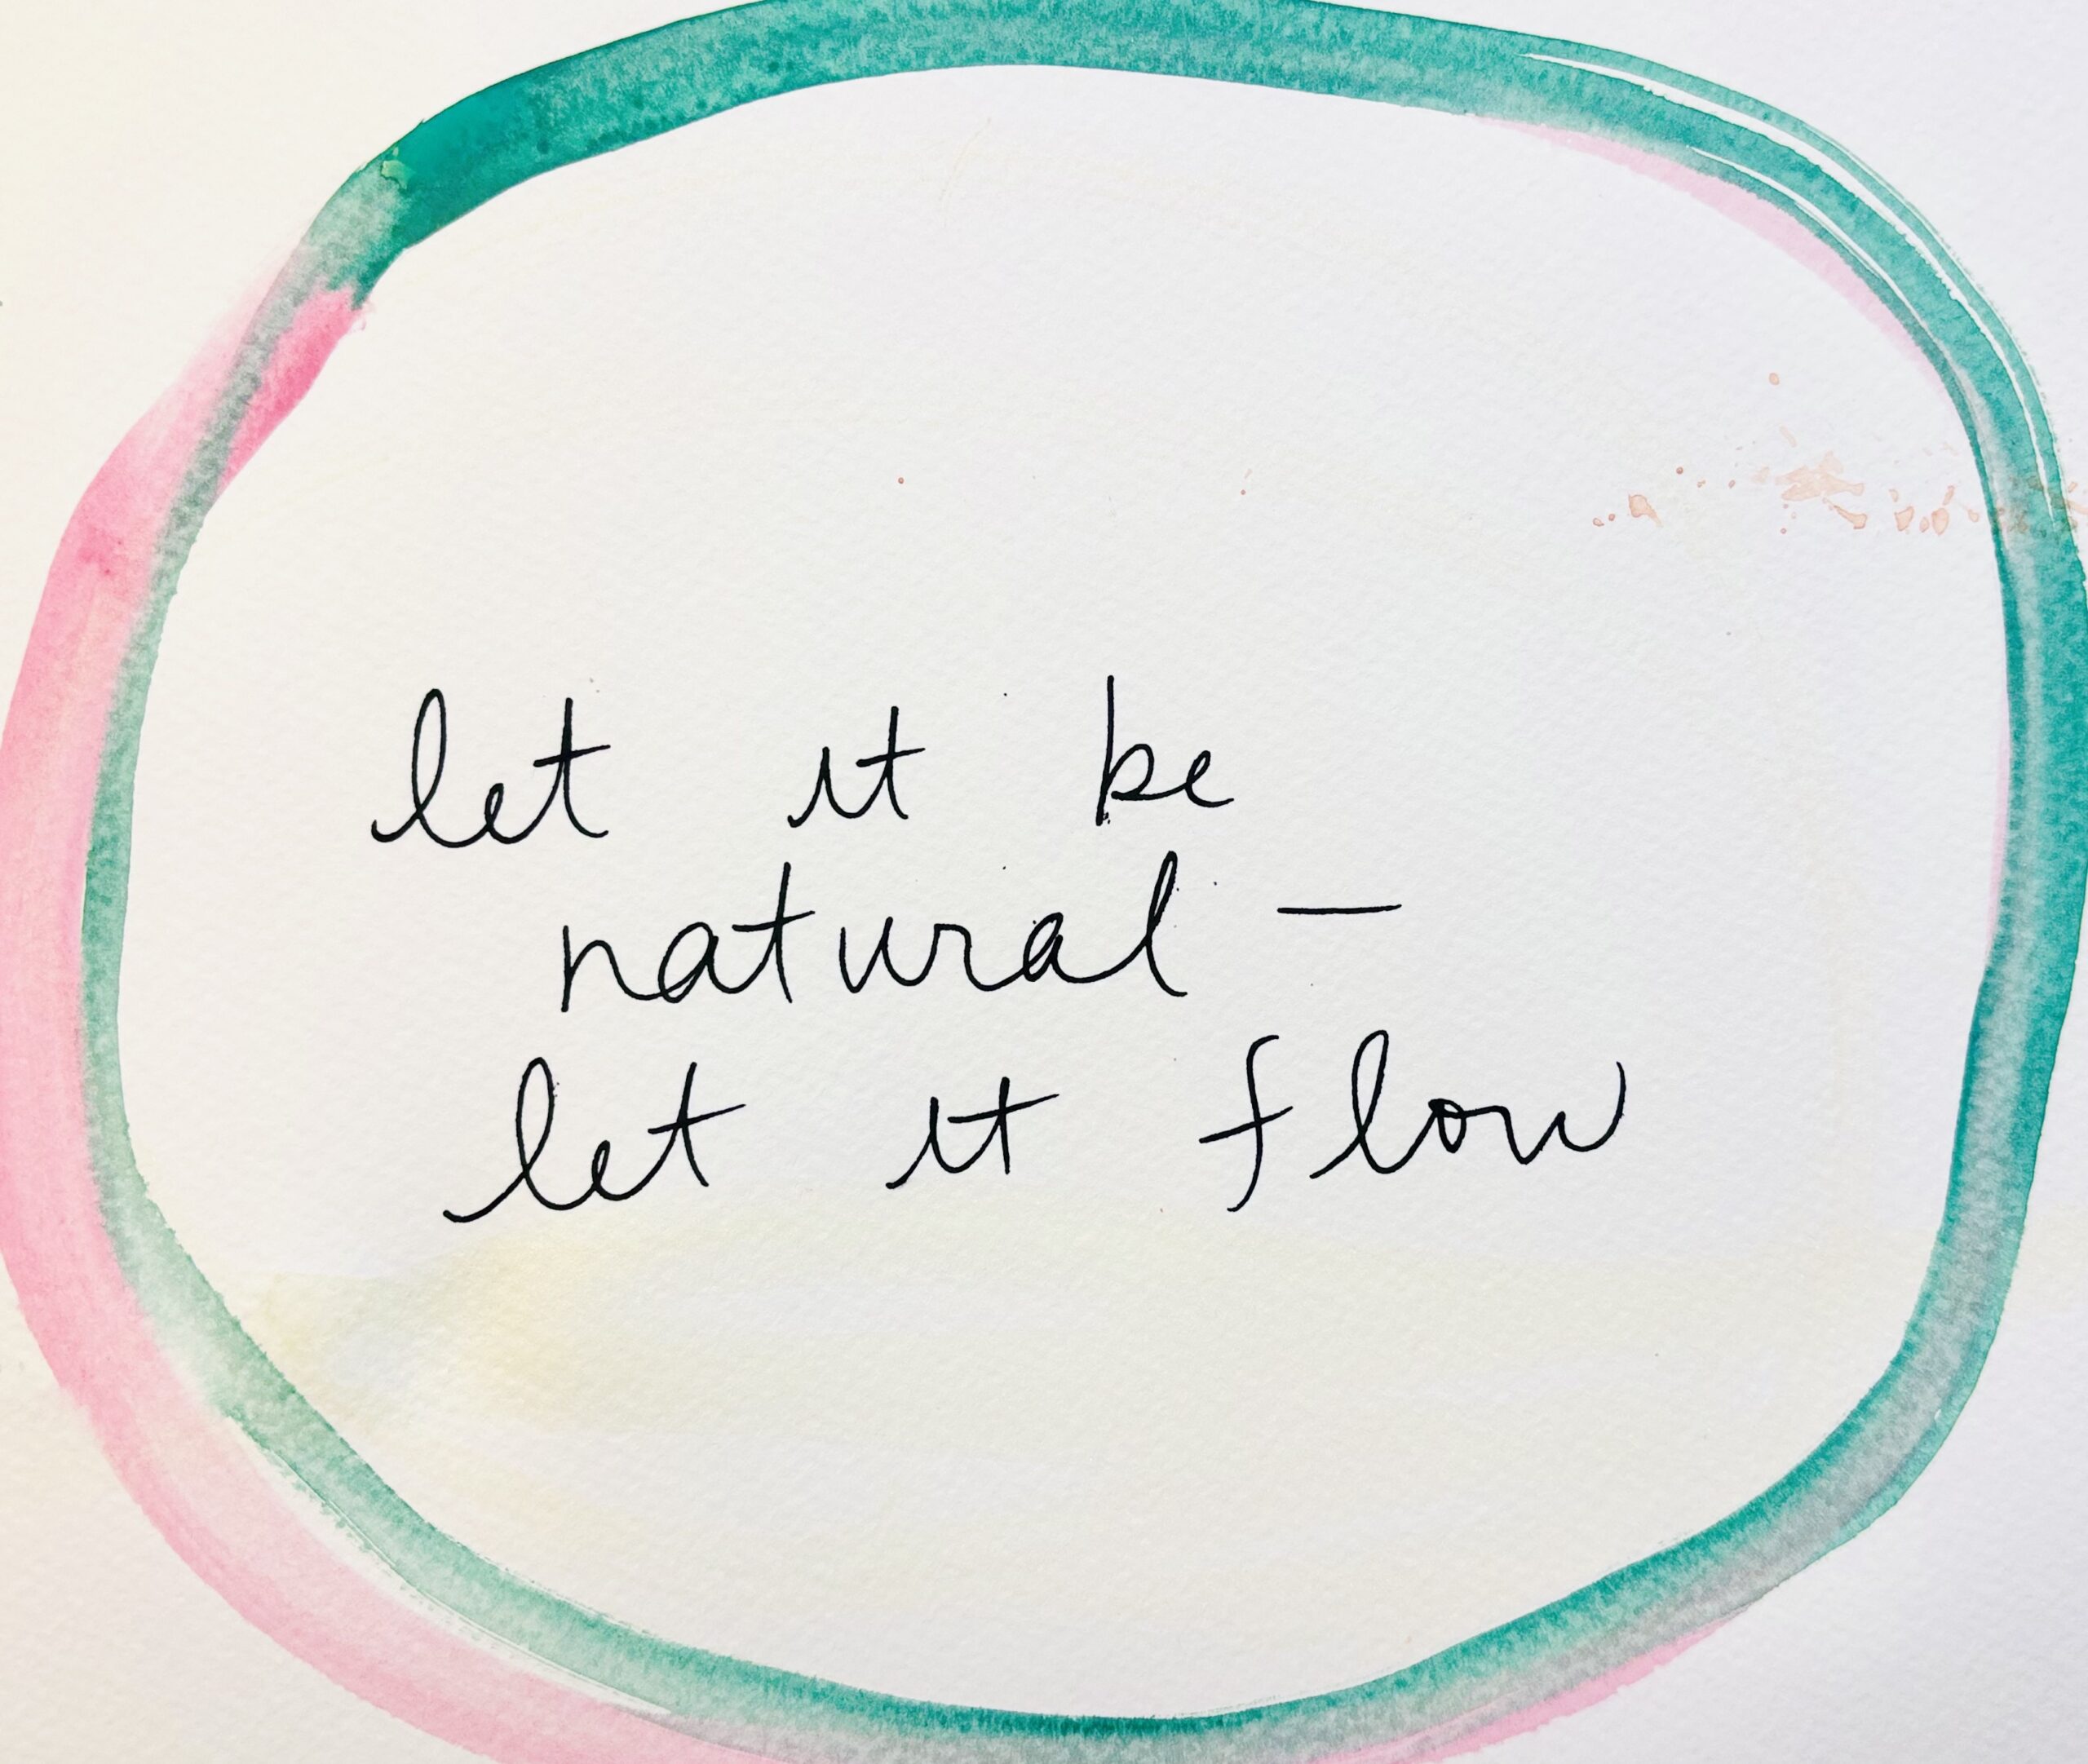 let it be
natural —
let it flow